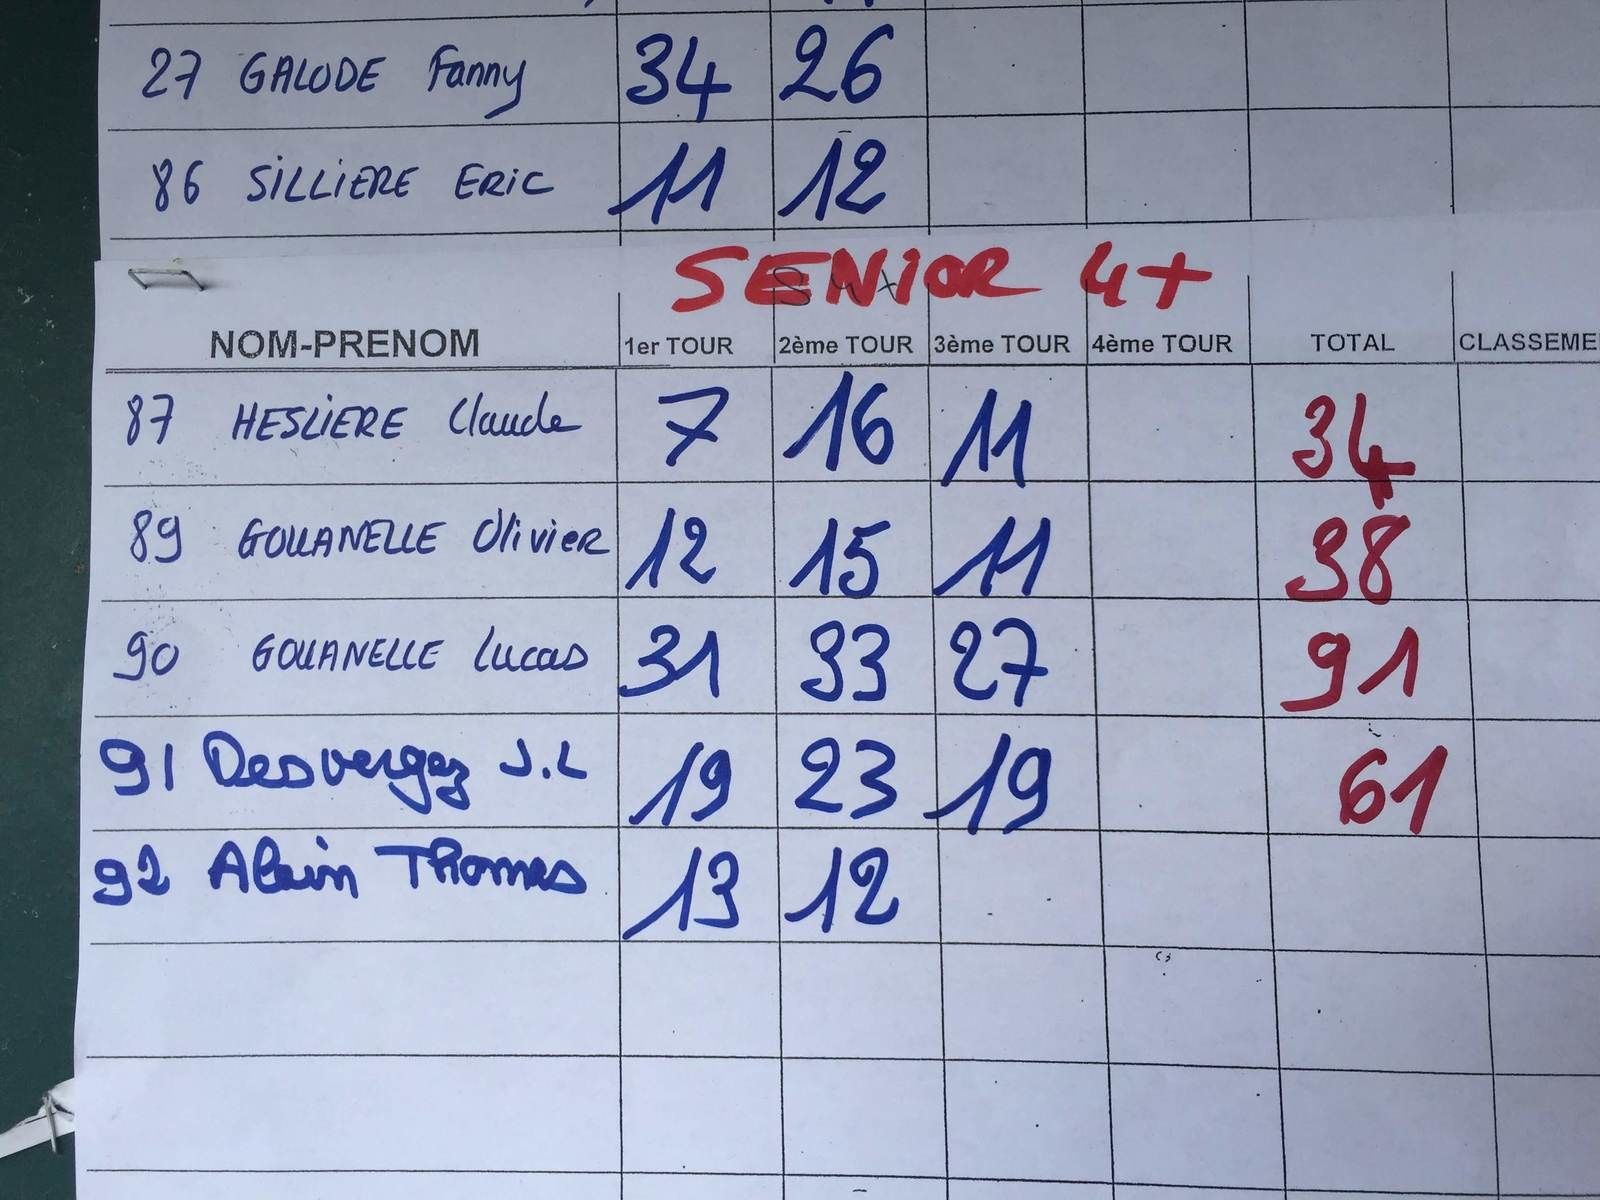 27 GALODE Fanny 34 26
86 SILLIERE ERIC 11 12
SENIOR 4+
NOM-PRENOM 1er TOUR 2ème TOUR 3ème TOUR 4ème TOUR TOTAL CLASSEME
87 HESLIERE Claude 7 16 11 34
89 GOUANELLE Olivier 12 15 11 38
90 GOUANELLE Lucas 31 33 27 91
91 Desvergez J.L 19 23 19 61
92 Alain Thomas 13 12